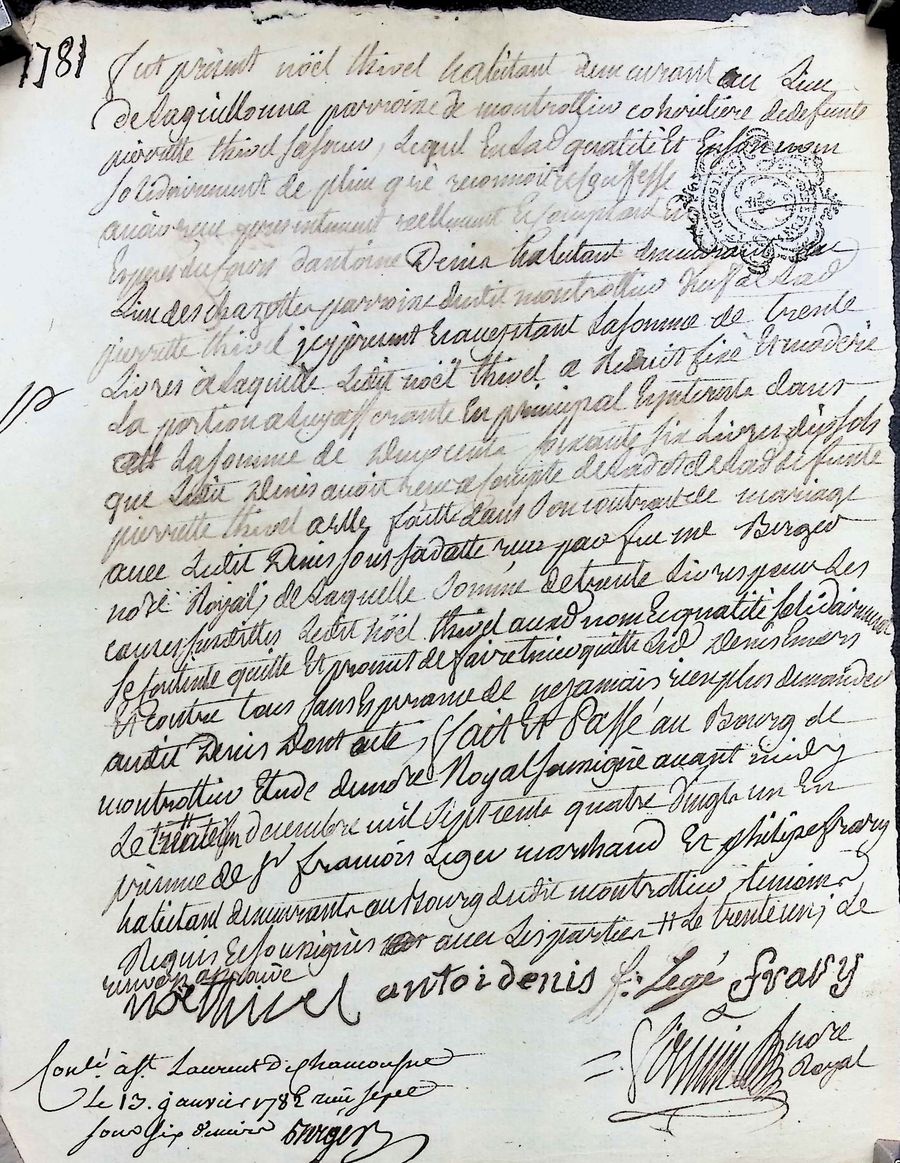 1781
fut présent noël thivel habitant demeurant au Lieu
de Laguillonna parroisse de montrottier cohéritiere de defunte
pierrette thivel sa soeur, Lequel En Lad qualité Et En son nom
solidairement de plein gré reconnoit et confesse
avoir reçu presentement reellement Et comptant
Especes du Cours d'antoine Denis habitant demeurant au
Lieu des chazottes parroisse dudit montrottier veuf de Lad
pierrette thivel icy present Et acceptant La somme de trente
Livres à Laquelle Ledit noël thivel a Reduit fixé Et moderé
La portion a Luy afferante En principal Et interests dans
La somme de Deux cents soixante six Livres dix sols
que Ledit Denis avoit reçu a Compte de La dot de Lad defunte
pierrette thivel a elle faitte dans son contrat de mariage
avec Ledit Denis sous sa datte reçu par feu me Berger
nore Royal, de Laquelle somme de trente Livres pour les
causes susdittes Ledit Noël thivel aud nom Et qualité solidairement
se contente quitte Et promet de faire tenir quitte Led Denis Envers
Et contre tous sans Esperance de ne jamais rien plus demander
audit Denis Dont acte, fait Et Passé au Bourg de
montrottier Etude du nore Royal soussigné avant midy
Le decembre mil sept cents quatre vingts un En
presence de Sr françois Leger marchand Et philipe fravy
habitant demeurants au Bourg dudit montrottier temoins
Requis Et soussignés avec Les parties # Le trente un, de
renvoy approuvé
noë thivel antoi denis f: Legé fravy
nore
Royal
Conlé à St Laurent de Chamousset
Le 13. janvier 1782 reçu sept
sous six deniers Berger